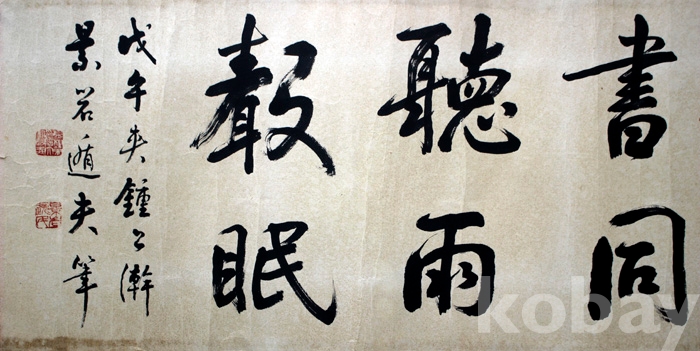 書同
聽雨
聲眠
戊午夾鍾上澣
景岩遁夫筆
kobay